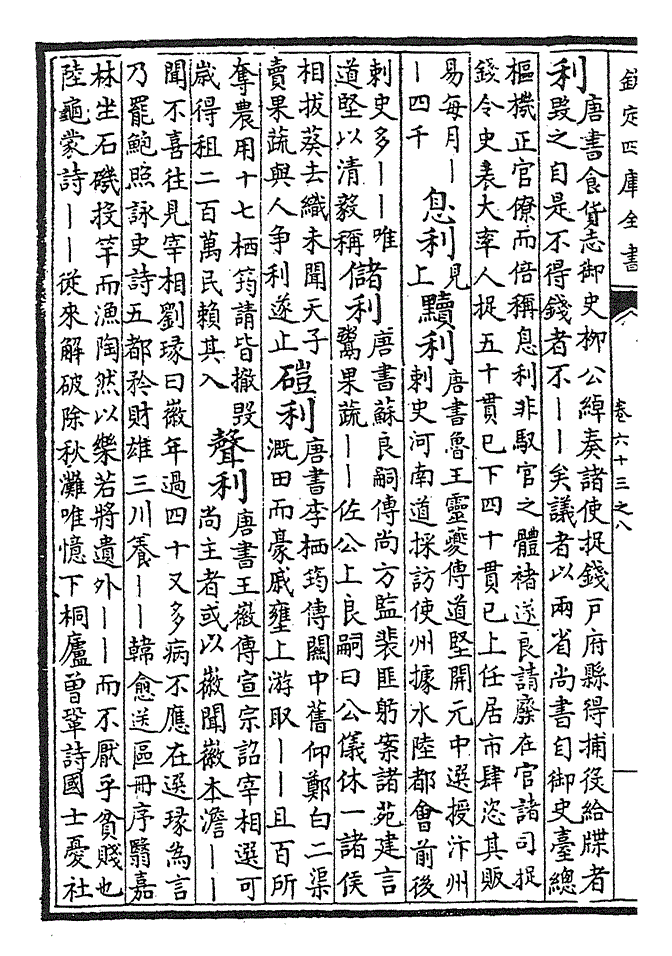 欽定四庫全書
卷六十三之八
利 唐書食貨志御史柳公綽奏諸使捉錢戶府縣得捕役給牒者
毀之自是不得錢者不——矣議者以兩省尚書自御史臺總
樞機正官僚而倍稱息利非馭官之體褚遂良請廢在官諸司捉
錢令史表大率人捉五十貫已下四十貫已上任居市肆恣其販
易每月—
—四千
息利 見
上
黷利 唐書魯王靈夔傳道堅開元中選授汴州
刺史河南道採訪使州據水陸都會前後
刺史多——唯
道堅以清毅稱
儲利 唐書蘇良嗣傳尚方監裴匪躬案諸苑建言
鬻果蔬——佐公上良嗣曰公儀休一諸侯
相拔葵去織未聞天子
賣果蔬與人爭利遂止
磑利 唐書李栖筠傳關中舊仰鄭白二渠
溉田而豪戚壅上游取——且百所
奪農用十七栖筠請皆撤毀
歲得租二百萬民賴其入
聲利 唐書王徽傳宣宗詔宰相選可
尚主者或以徽聞徽本澹——
聞不喜往見宰相劉瑑曰徽年過四十又多病不應在選瑑為言
乃罷鮑照詠史詩五都矜財雄三川養——韓愈送區冊序翳嘉
林坐石磯投竿而漁陶然以樂若將遺外——而不厭乎貧賤也
陸龜蒙詩——從來解破除秋灘唯憶下桐廬曾鞏詩國士憂社